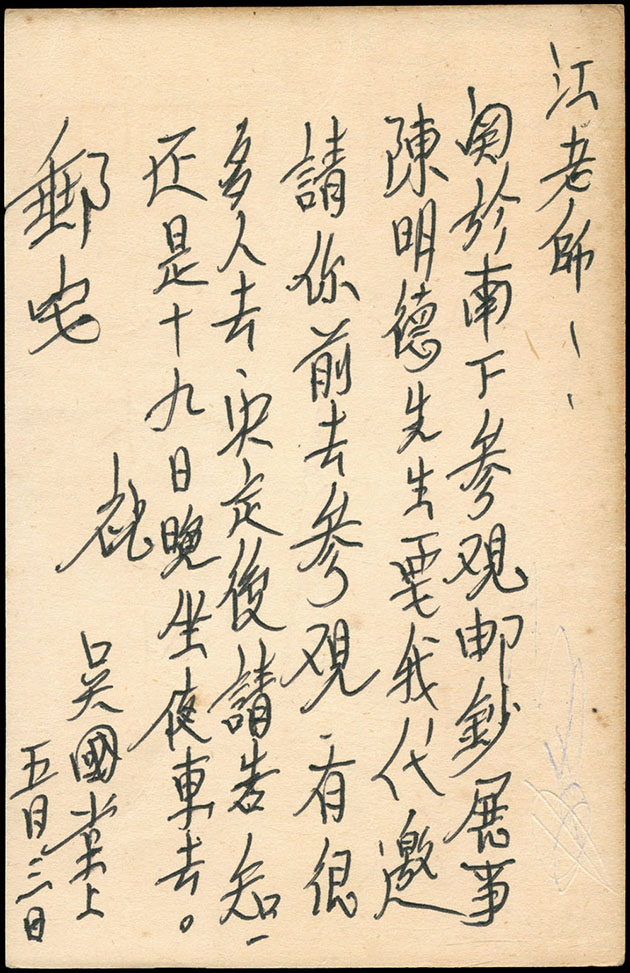 江老師：
関於南下参观邮鈔展事
陳明德先生要我代邀
請你前去参观，有很
多人去，决定後請告知，
还是十九日晚坐夜車去。
郵安
吳國棠上
五日三日